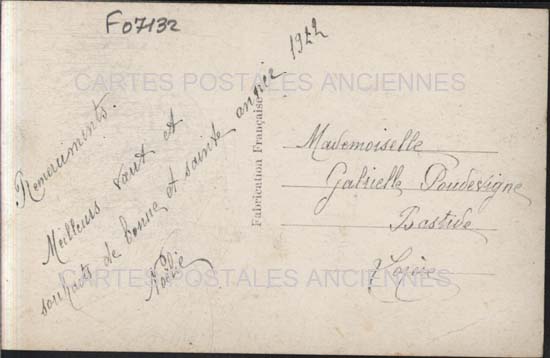 F07132
CARTES POSTALES ANCIENNES
Remerciments.
Meilleurs vœux et
souhaits de bonne et sainte année 1922
Noélie
Fabrication Française
Mademoiselle
Gabrielle Poudevigne
Bastide
Lozère
CARTES POSTALES ANCIENNES